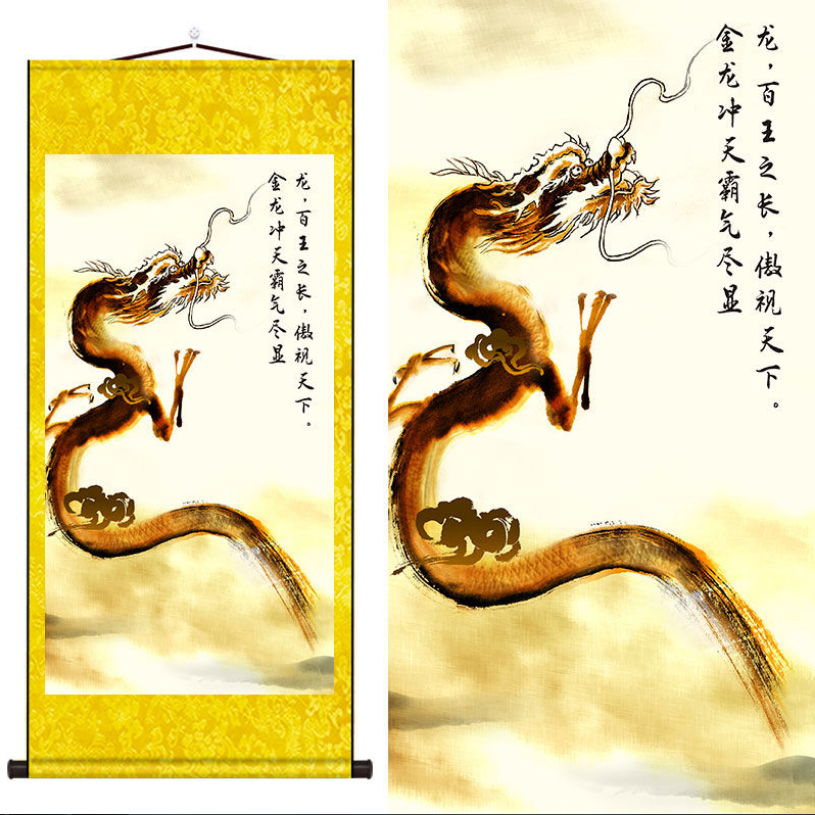 龙，百王之长，傲视天下。
金龙冲天霸气尽显
龙，百王之长，傲视天下。
金龙冲天霸气尽显